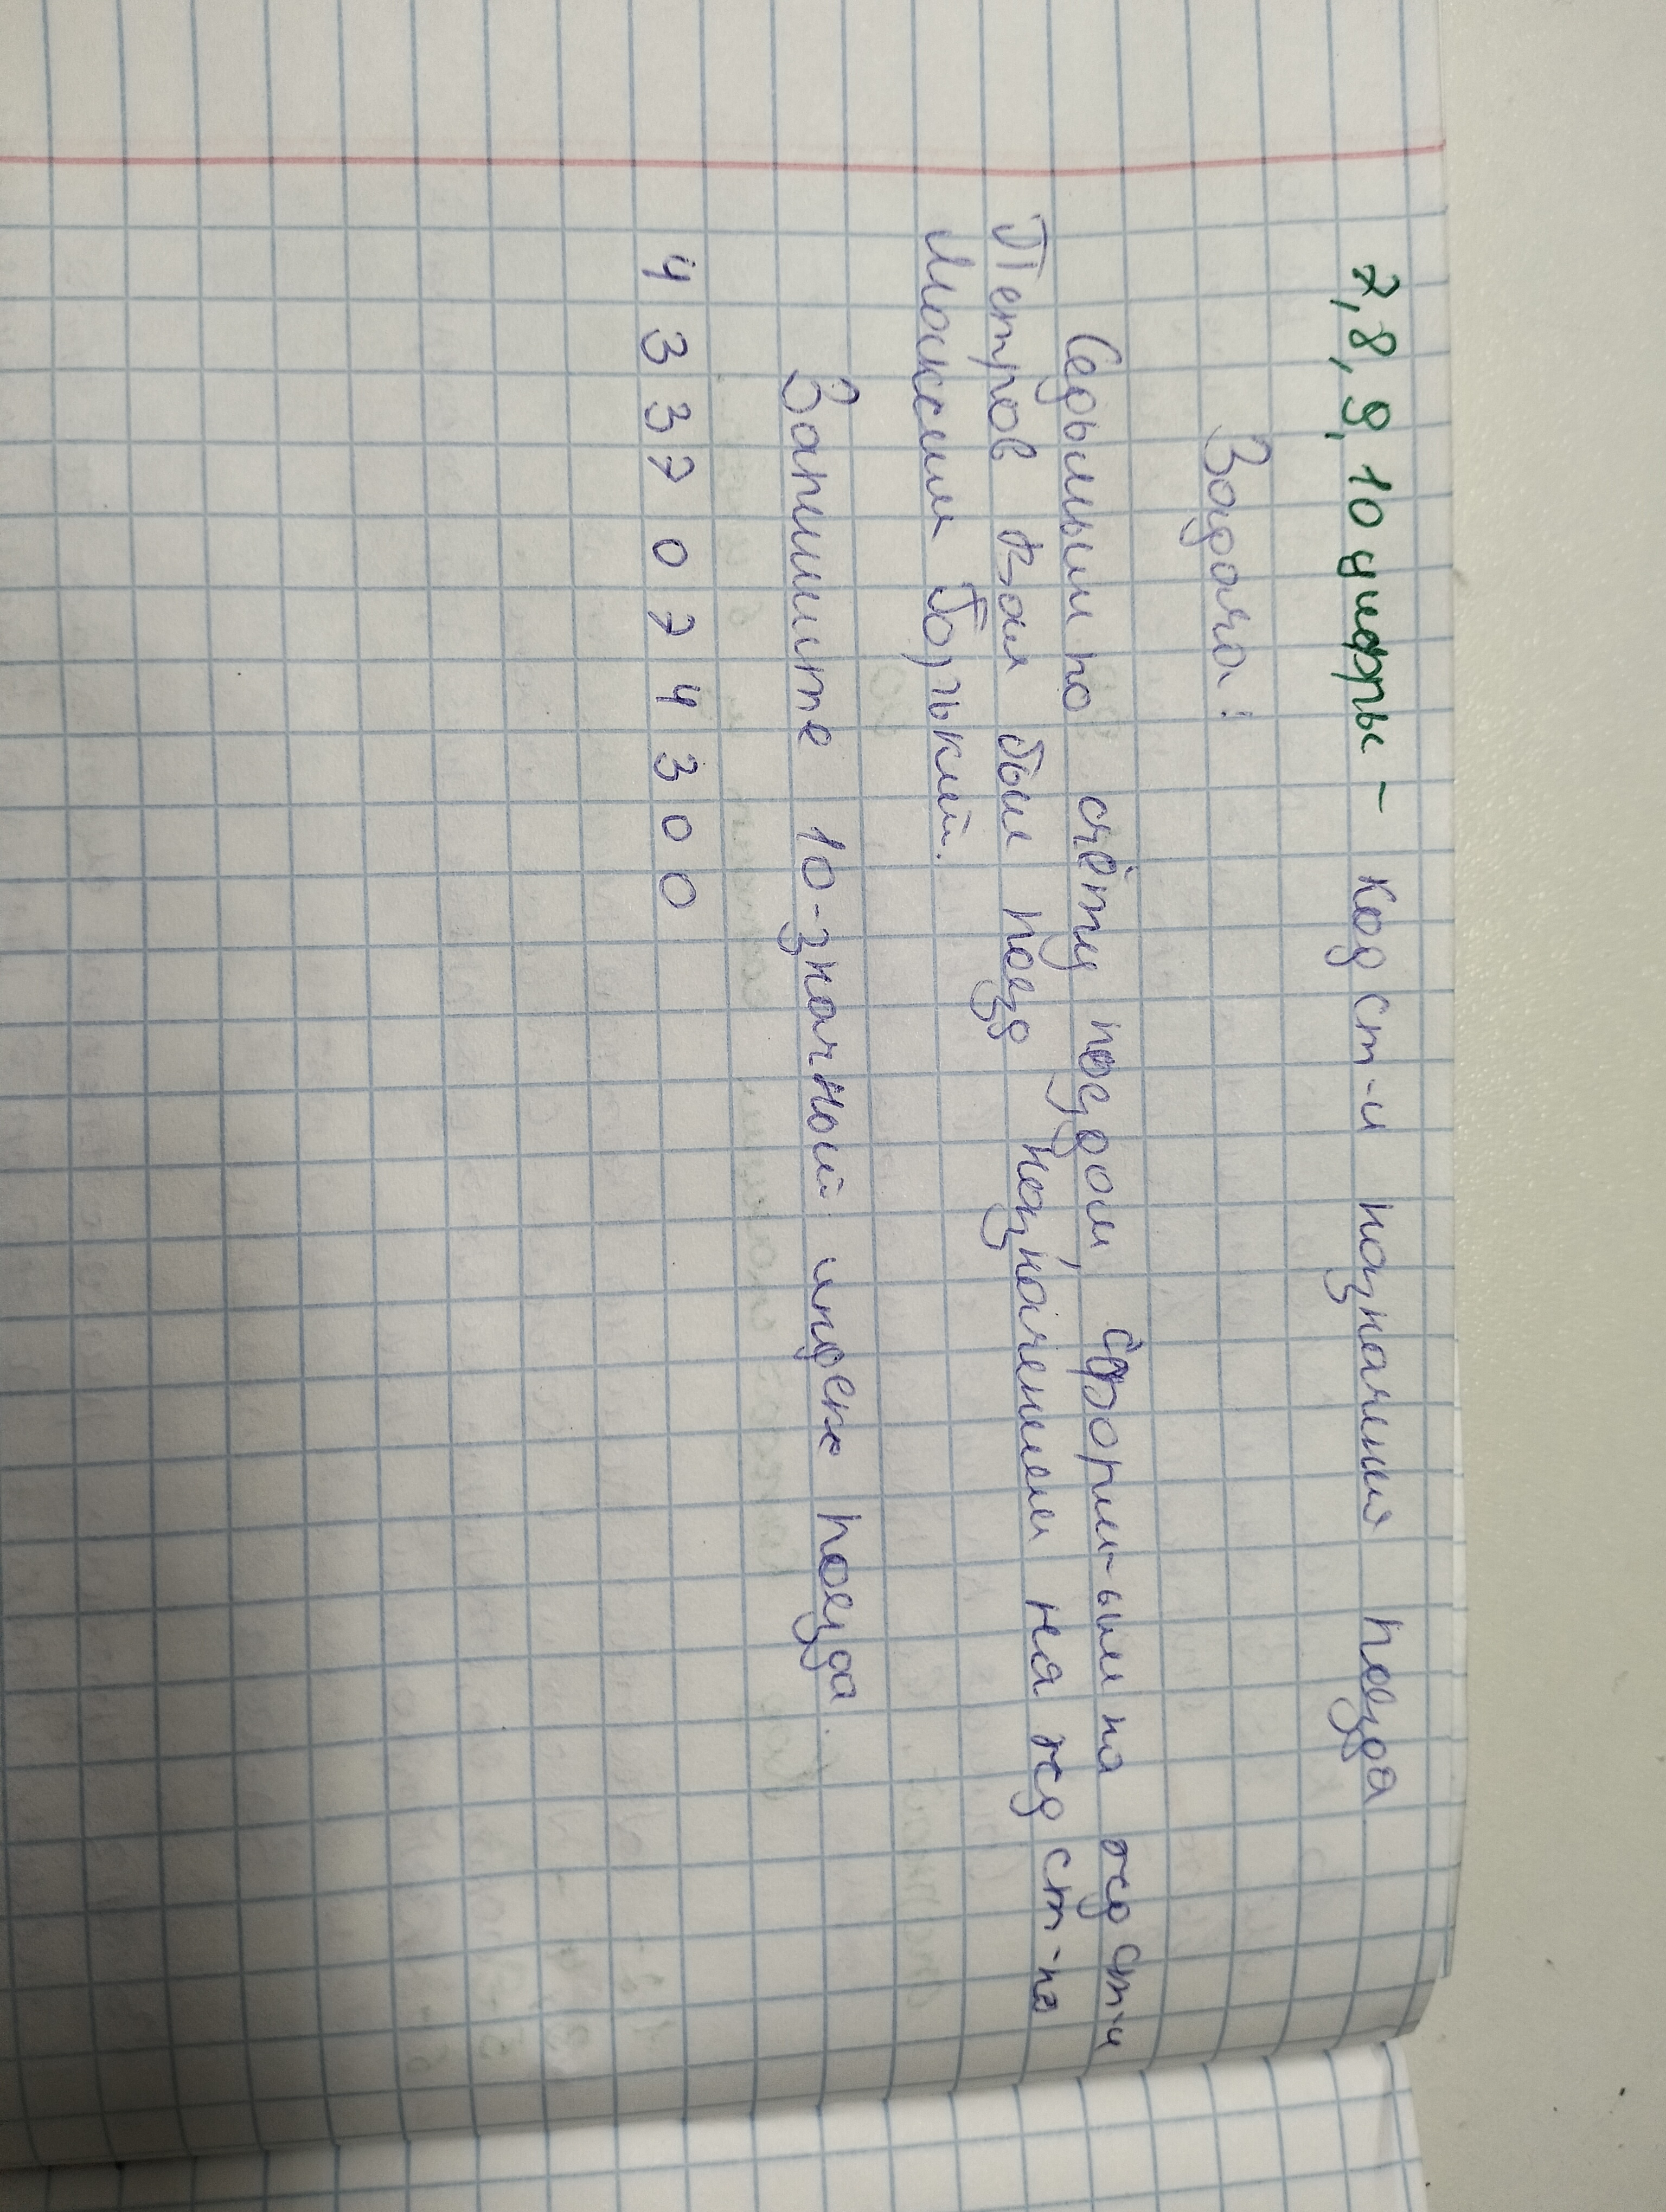 7, 8, 9, 10 цифры - код ст-и назначения поезда
Задача:
Седьмым по счёту поездом, сформ-ым на жд ст-и
Петров Вал был поезд назначением на жд ст-ю
Максим Горький.
Запишите 10-значный индекс поезда.
4 3 3 7 0 7 4 3 0 0